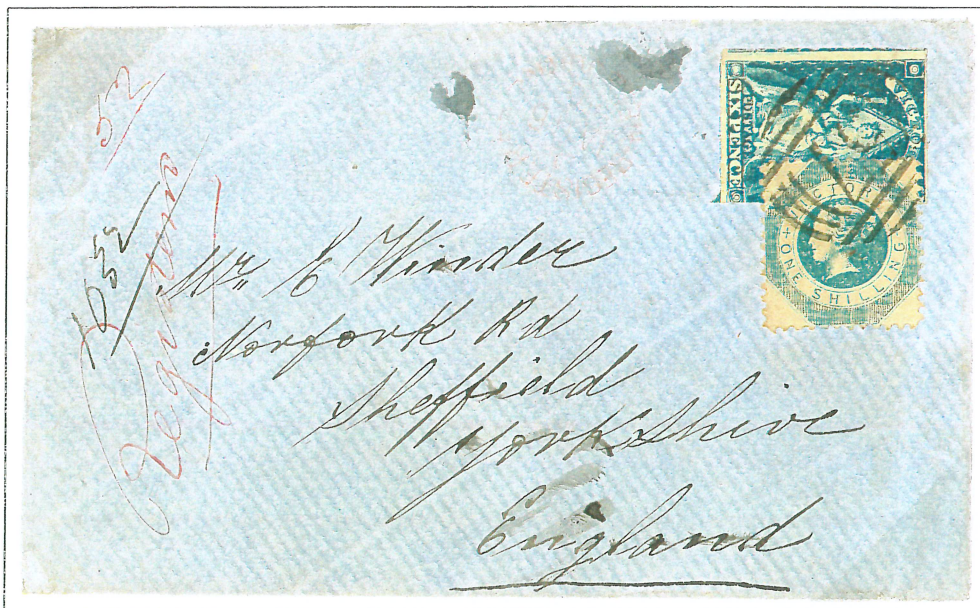 52
Registered
552
POSTAGE
SIXPENCE
VICTORIA
ONE SHILLING
Mr E Winder
Norfork Rd
Sheffield
YorkShire
England